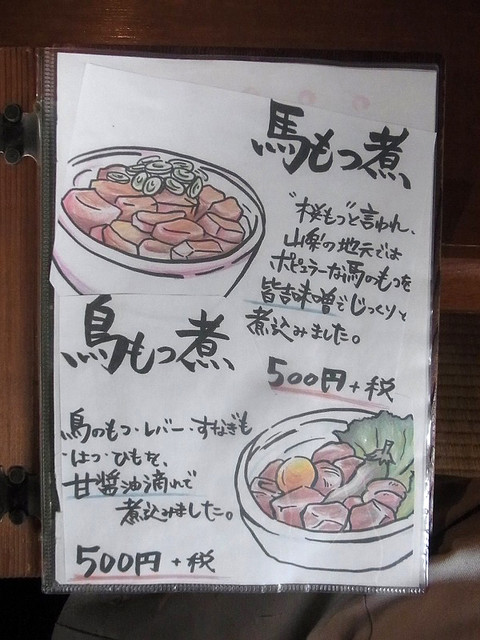 馬もつ煮
"桜もつ"と言われ、
山梨の地元では
ポピュラーな馬のもつを
皆吉味噌でじっくりと
煮込みました。
500円+税
鳥もつ煮
鳥のもつ・レバー・すなぎも
・はつ・ひもを、
甘醤油滴れで
煮込みました。
500円+税